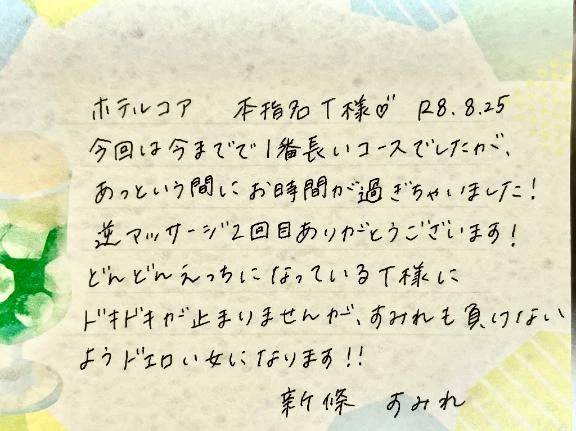 ホテルコア 本指名T様♡ R8.8.25
今回は今までで1番長いコースでしたが、
あっという間にお時間が過ぎちゃいました！
逆マッサージ2回目ありがとうございます！
どんどんえっちになっているT様に
ドキドキが止まりませんが、すみれも負けない
ようドエロい女になります！！
新條 すみれ